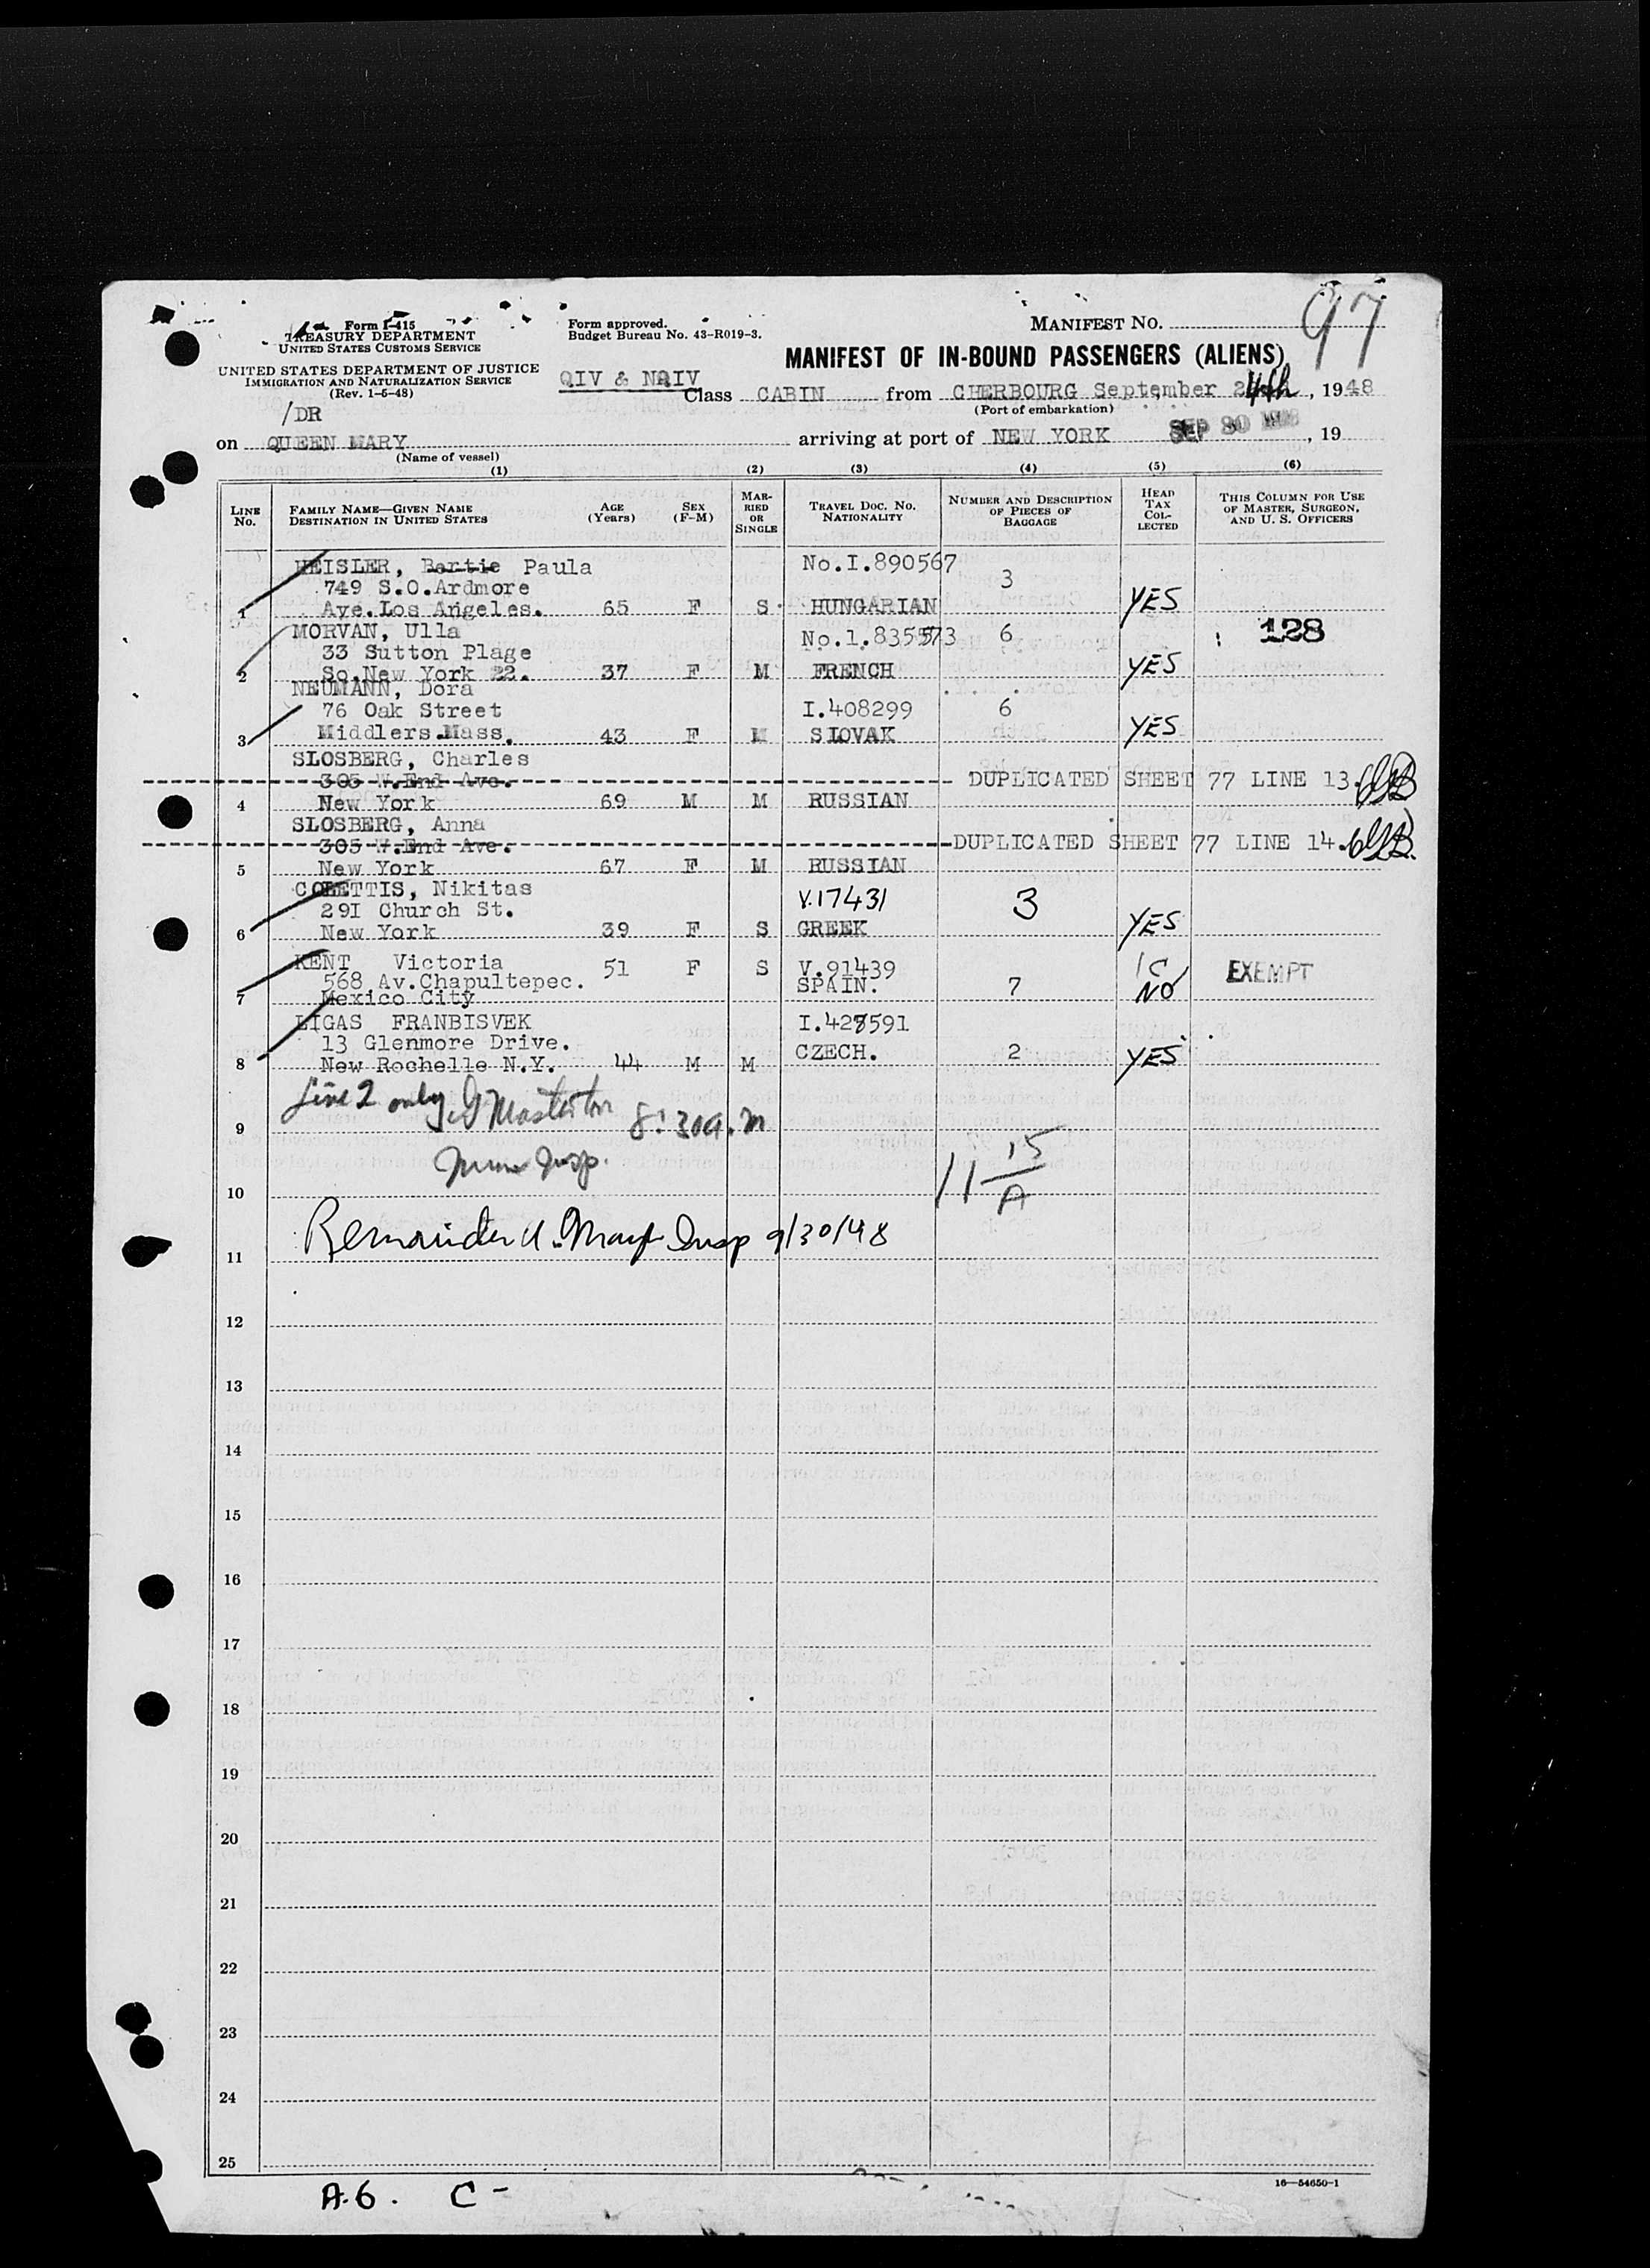 Form I-415
TREASURY DEPARTMENT
UNITED STATES CUSTOMS SERVICE
UNITED STATES DEPARTMENT OF JUSTICE
IMMIGRATION AND NATURALIZATION SERVICE
(Rev. 1-5-48)
/DR
Form approved.
Budget Bureau No. 43-R019-3.
MANIFEST NO. 97
MANIFEST OF IN-BOUND PASSENGERS (ALIENS)
QIV & NQIV
Class CABIN from CHERBOURG September 24th, 1948
(Port of embarkation)
on QUEEN MARY arriving at port of NEW YORK SEP 30 1948, 19
(Name of vessel)
(1) (2) (3) (4) (5) (6)
LINE No. FAMILY NAME—GIVEN NAME DESTINATION IN UNITED STATES AGE (Years) SEX (F-M) MARRIED OR SINGLE TRAVEL DOC. NO. NATIONALITY NUMBER AND DESCRIPTION OF PIECES OF BAGGAGE HEAD TAX COLLECTED THIS COLUMN FOR USE OF MASTER, SURGEON, AND U. S. OFFICERS
HEISLER, Bertie Paula No.I.890567
749 S.O.Ardmore 3
1 Ave.Los Angeles. 65 F S HUNGARIAN YES
MORVAN, Ulla No.1.835573 6 128
33 Sutton Plage
2 So.New York 22. 37 F M FRENCH YES
NEUMANN, Dora
76 Oak Street I.408299 6
3 Middlers.Mass. 43 F M SLOVAK YES
SLOSBERG, Charles
305 W.End Ave. DUPLICATED SHEET 77 LINE 13.
4 New York 69 M M RUSSIAN
SLOSBERG, Anna
305 W.End Ave. DUPLICATED SHEET 77 LINE 14.
5 New York 67 F M RUSSIAN
COLETTIS, Nikitas V.17431 3
291 Church St.
6 New York 39 F S GREEK YES
KENT Victoria 51 F S V.91439 1C EXEMPT
568 Av.Chapultepec. SPAIN. 7
7 Mexico City NO
LIGAS FRANBISVEK I.428591
13 Glenmore Drive. CZECH. 2
8 New Rochelle N.Y. 44 M M YES
Line 2 only 8:30a.m
9
Insp. 11 15/A
10
Remainder Insp 9/30/48
11
12
13
14
15
16
17
18
19
20
21
22
23
24
25
16—54650-1
A.6. C-